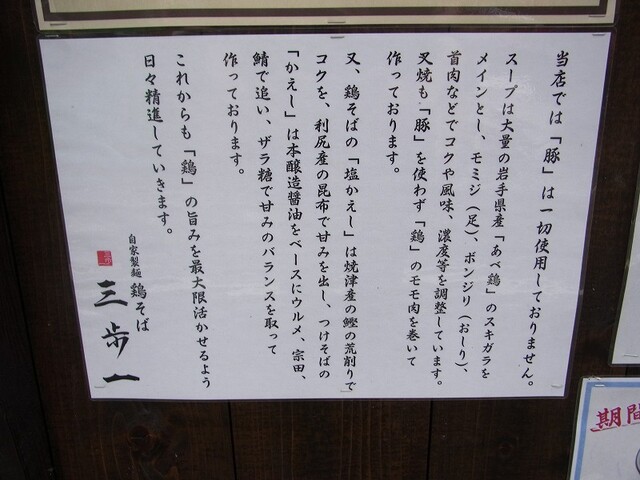 当店では「豚」は一切使用しておりません。
スープは大量の岩手県産「あべ鶏」のスキガラを
メインとし、モミジ(足)、ボンジリ(おしり)、
首肉などでコクや風味、濃度等を調整しています。
叉焼も「豚」を使わず「鶏」のモモ肉を巻いて
作っております。
又、鶏そばの「塩かえし」は焼津産の鰹の荒削りで
コクを、利尻産の昆布で甘みを出し、つけそばの
「かえし」は本醸造醤油をベースにウルメ、宗田、
鯖で追い、ザラ糖で甘みのバランスを取って
作っております。
これからも「鶏」の旨みを最大限活かせるよう
日々精進していきます。
自家製麺 鶏そば
三歩一
期間